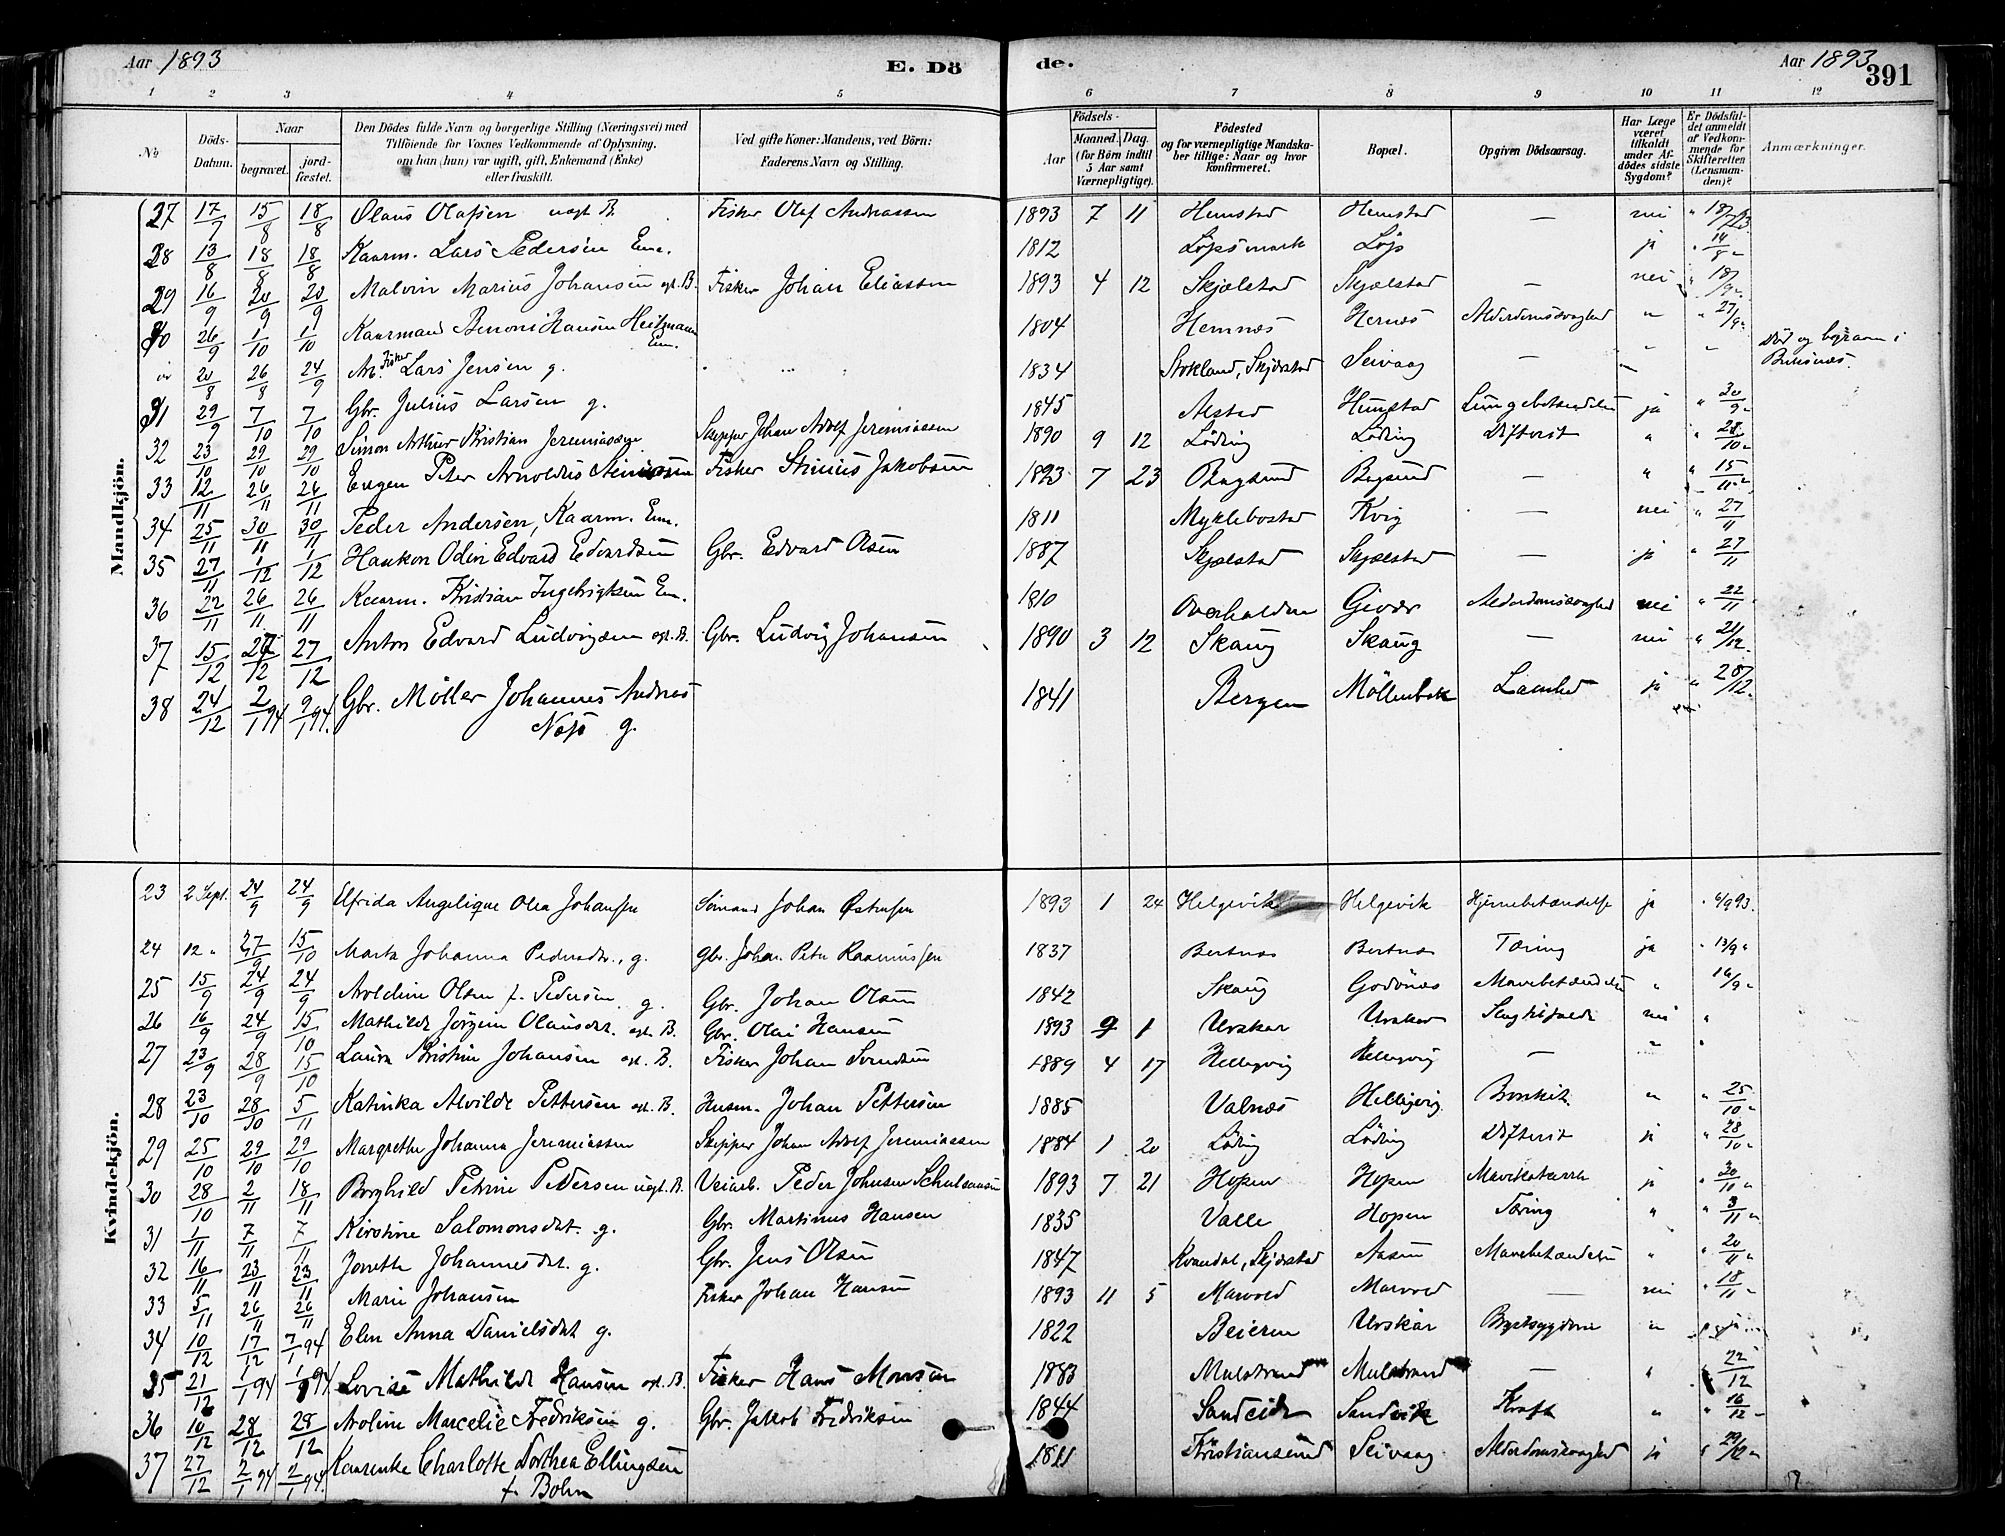 Aar 1893
E. Dö
de.
Aar 1893
391
1 2 3 4 5 6 7 8 9 10 11 12
No
Döds-Datum.
Naar
begravet.
jord-fæstet.
Den Dödes fulde Navn og borgerlige Stilling (Næringsvei) med
Tilföiende for Voxnes Vedkommende af Oplysning,
om han (hun) var ugift, gift, Enkemand (Enke)
eller fraskilt.
Ved gifte Koner: Mandens, ved Börn:
Faderens Navn og Stilling.
Födsels-
Aar
Maaned. Dag.
(for Börn indtil
5 Aar samt
Værnepligtige).
Födested
og for værnepligtige Mandska-
ber tillige: Naar og hvor
konfirmeret.
Bopæl.
Opgiven Dödsaarsag.
Har Læge
været
tilkaldt
under Af-
dödes sidste
Sygdom?
Er Dödsfal-
det anmeldt
af Vedkom-
mende for
Skifteretten
(Lensman-
den)?
Anmærkninger.
Mandkjön.
27 17/7 15/8 18/8 Olaus Olafsen uægt B. Fisker Olaf Andreassen 1893 7 11 Hemstad Hemstad — nei " 18/7 93
28 13/8 18/8 18/8 Kaarm. Lars Pedersen Em. 1812 Löpsmark Löp ja " 14/8 "
29 16/9 20/9 20/9 Malvin Marius Johansen ægt. B. Fisker Johan Eliassen 1893 4 12 Skjælstad Skjælstad — nei " 18/9 "
30 26/9 1/10 1/10 Kaarmand Benoni Hansen Heitmann Em. 1804 Hemnæs Hernæs Alderdomssvaghed " " 27/9 "
20/8 26/8 24/9 Arb. Fisker Lars Jensen g. 1834 Stokland, Skjerstad Seivaag — " " Död og begraven i
31 29/9 7/10 7/10 Gbr. Julius Larsen g. 1845 Alstad Hunstad Lungebetændelse ja " 30/9 "
32 23/10 29/10 29/10 Simon Arthur Kristian Jeremiassen Skipper Johan Adolf Jeremiassen 1890 9 12 Löding Löding Difterit " " 28/10 "
33 12/11 26/11 26/11 Eugen Peter Arnoldus Steinsen Fisker Stinius Jakobsen 1893 7 23 Bagsund Bagsund — " " 15/11 "
34 25/11 30/11 30/11 Peder Andersen, Kaarm. Em. 1811 Myklebostad Kvig — nei " 27/11
35 27/11 1/12 1/12 Haakon Odin Edvard Edvardsen Gbr. Edvard Olsen 1887 Skjælstad Skjælstad — ja " 27/11
36 22/11 26/11 26/11 Kaarm. Kristian Ingebrigtsen Em. 1810 Overhalden Givær Alderdomssvaghed nei " 22/11
37 15/12 27/12 27/12 Anton Edvard Ludvigsen ægt. B. Gbr. Ludvig Johansen 1890 3 12 Skaug Skaug — nei " 21/12
38 24/12 2/1 94 9/1 94. Gbr. Møller Johannes Andreas 1841 Bergen Möllenbek Lamhed ja " 28/12
g.
Kvindekjön.
23 2 Sept. 24/9 24/9 Elfrida Angelique Olea Johansen Sømand Johan Østensen 1893 1 24 Helgevik Helgevik Hjernebetændelse ja " 6/9 93.
24 12 " 27/9 15/10 Marta Johanna Pedersdtr., g. Gbr. Johan Peter Rasmussen 1837 Bertnæs Bertnæs Tæring ja " 13/9 "
25 15/9 24/9 24/9 Aroldine Olsen f. Pedersen g. Gbr. Johan Olsen 1842 Skaug Godönæs Mavebetændelse " 16/9 "
26 16/9 24/9 15/10 Mathilde Jörgine Olausdat. ægt. B. Gbr. Olai Hansen 1893 9 1 Urskar Urskar nei "
27 23/9 28/9 15/10 Laura Kristine Johansen ægt. B. Fisker Johan Svendsen 1889 4 17 Helligvig Helligvig — " "
28 23/10 28/10 5/11 Katinka Alvilde Pettersen ægt. B. Husm. Johan Pettersen 1885 Valnæs Helligvig Bronkit " " 25/10 "
29 25/10 29/10 29/10 Margrethe Johanna Jeremiassen Skipper Johan Adolf Jeremiassen 1884 1 20 Löding Löding Difterit ja " 28/10 "
30 28/10 2/11 18/11 Borghild Petrine Pedersen uægt. B. Veiarb. Peder Johnsen 1893 7 21 Hopen Hopen Mavekatarrh ja " 30/10 "
31 1/11 7/11 7/11 Kirstine Salomonsdat. g. Gbr. Martinus Hansen 1835 Valle Hopen Tæring " " 3/11 "
32 16/11 23/11 23/11 Jonetta Johannesdat. g. Gbr. Jens Olsen 1847 Kvandal, Skjerstad Aasen Mavebetændelse " " 20/11 "
33 5/11 26/11 26/11 Marie Johansen Fisker Johan Hansen 1893 11 5 Marvold Marvold — nei " 18/11 "
34 10/12 17/12 7/1 94 Elen Anna Danielsdat g. 1822 Beieren Urskar Brystsygdom "
35 21/12 1/1 94 1/1 94 Lovise Mathilde Hansen ægt. B. Fisker Hans Monsen 1883 Mulstrand Mulstrand — " 22/12
36 10/12 28/12 28/12 Aroline Marcelie Fredriksen g. Gbr. Jakob Fredriksen 1844 Sandeide Sandvik Kræft " " 16/12 "
37 27/12 2/1 94 2/1 94. Kaurenke Charlotte Dorthea Ellingsen 1811 Kristiansund Seivaag Alderdomssvaghed ja " 29/12 "
f. Bohn